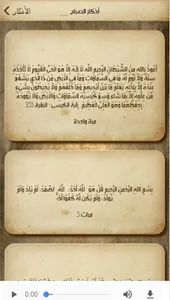 الأذكار
أذكار الصباح
أعوذ بالله من الشيطان الرجيم الله لا إله إلا هو الحي القيوم لا تأخذه
سنة ولا نوم له ما في السماوات وما في الأرض من ذا الذي يشفع
من علمه إلا بما شاء وسع كرسيه السماوات والأرض ولا
يؤوده حفظهما وهو العلي العظيم. [آية الكرسى - البقرة 255].
مرة واحدة
بسم الله الرحمن الرحيم قل هو الله أحد، الله الصمد، لم يلد ولم
يولد، ولم يكن له كفوا أحد
3 مرات
0:00